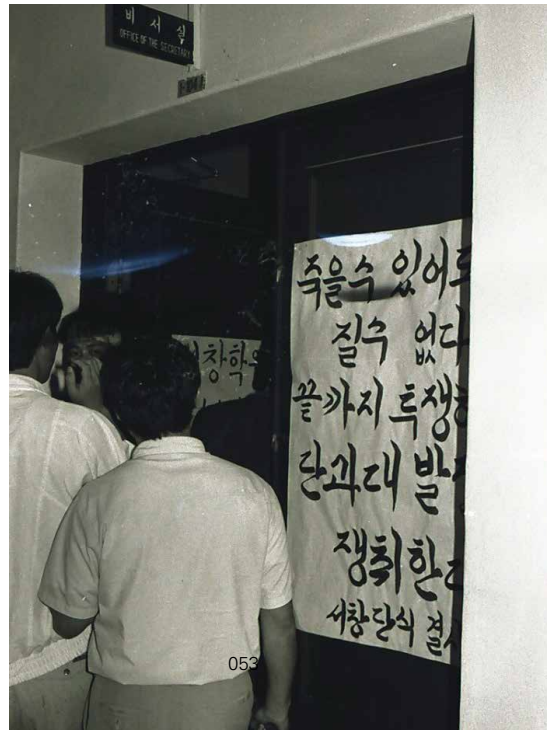 비서실
OFFICE OF THE SECRETARY
죽을수 있어도
질수 없다
끝까지 투쟁
단과대 발
쟁취한
서창단식 결
창학
053